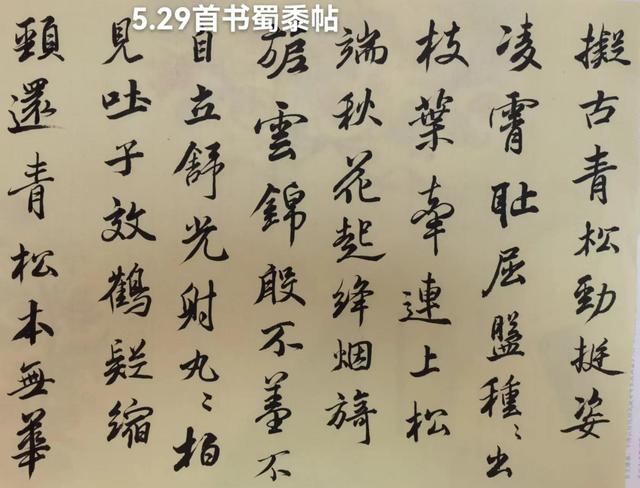 5.29首书蜀黍帖
擬古青松勁挺姿
凌霄耻屈盤種々出
枝葉牽連上松
端秋花起絳烟旖
旎雲錦殷不羞不
自立舒光射丸々柏
見吐子效鶴疑縮
頸還青松本無華